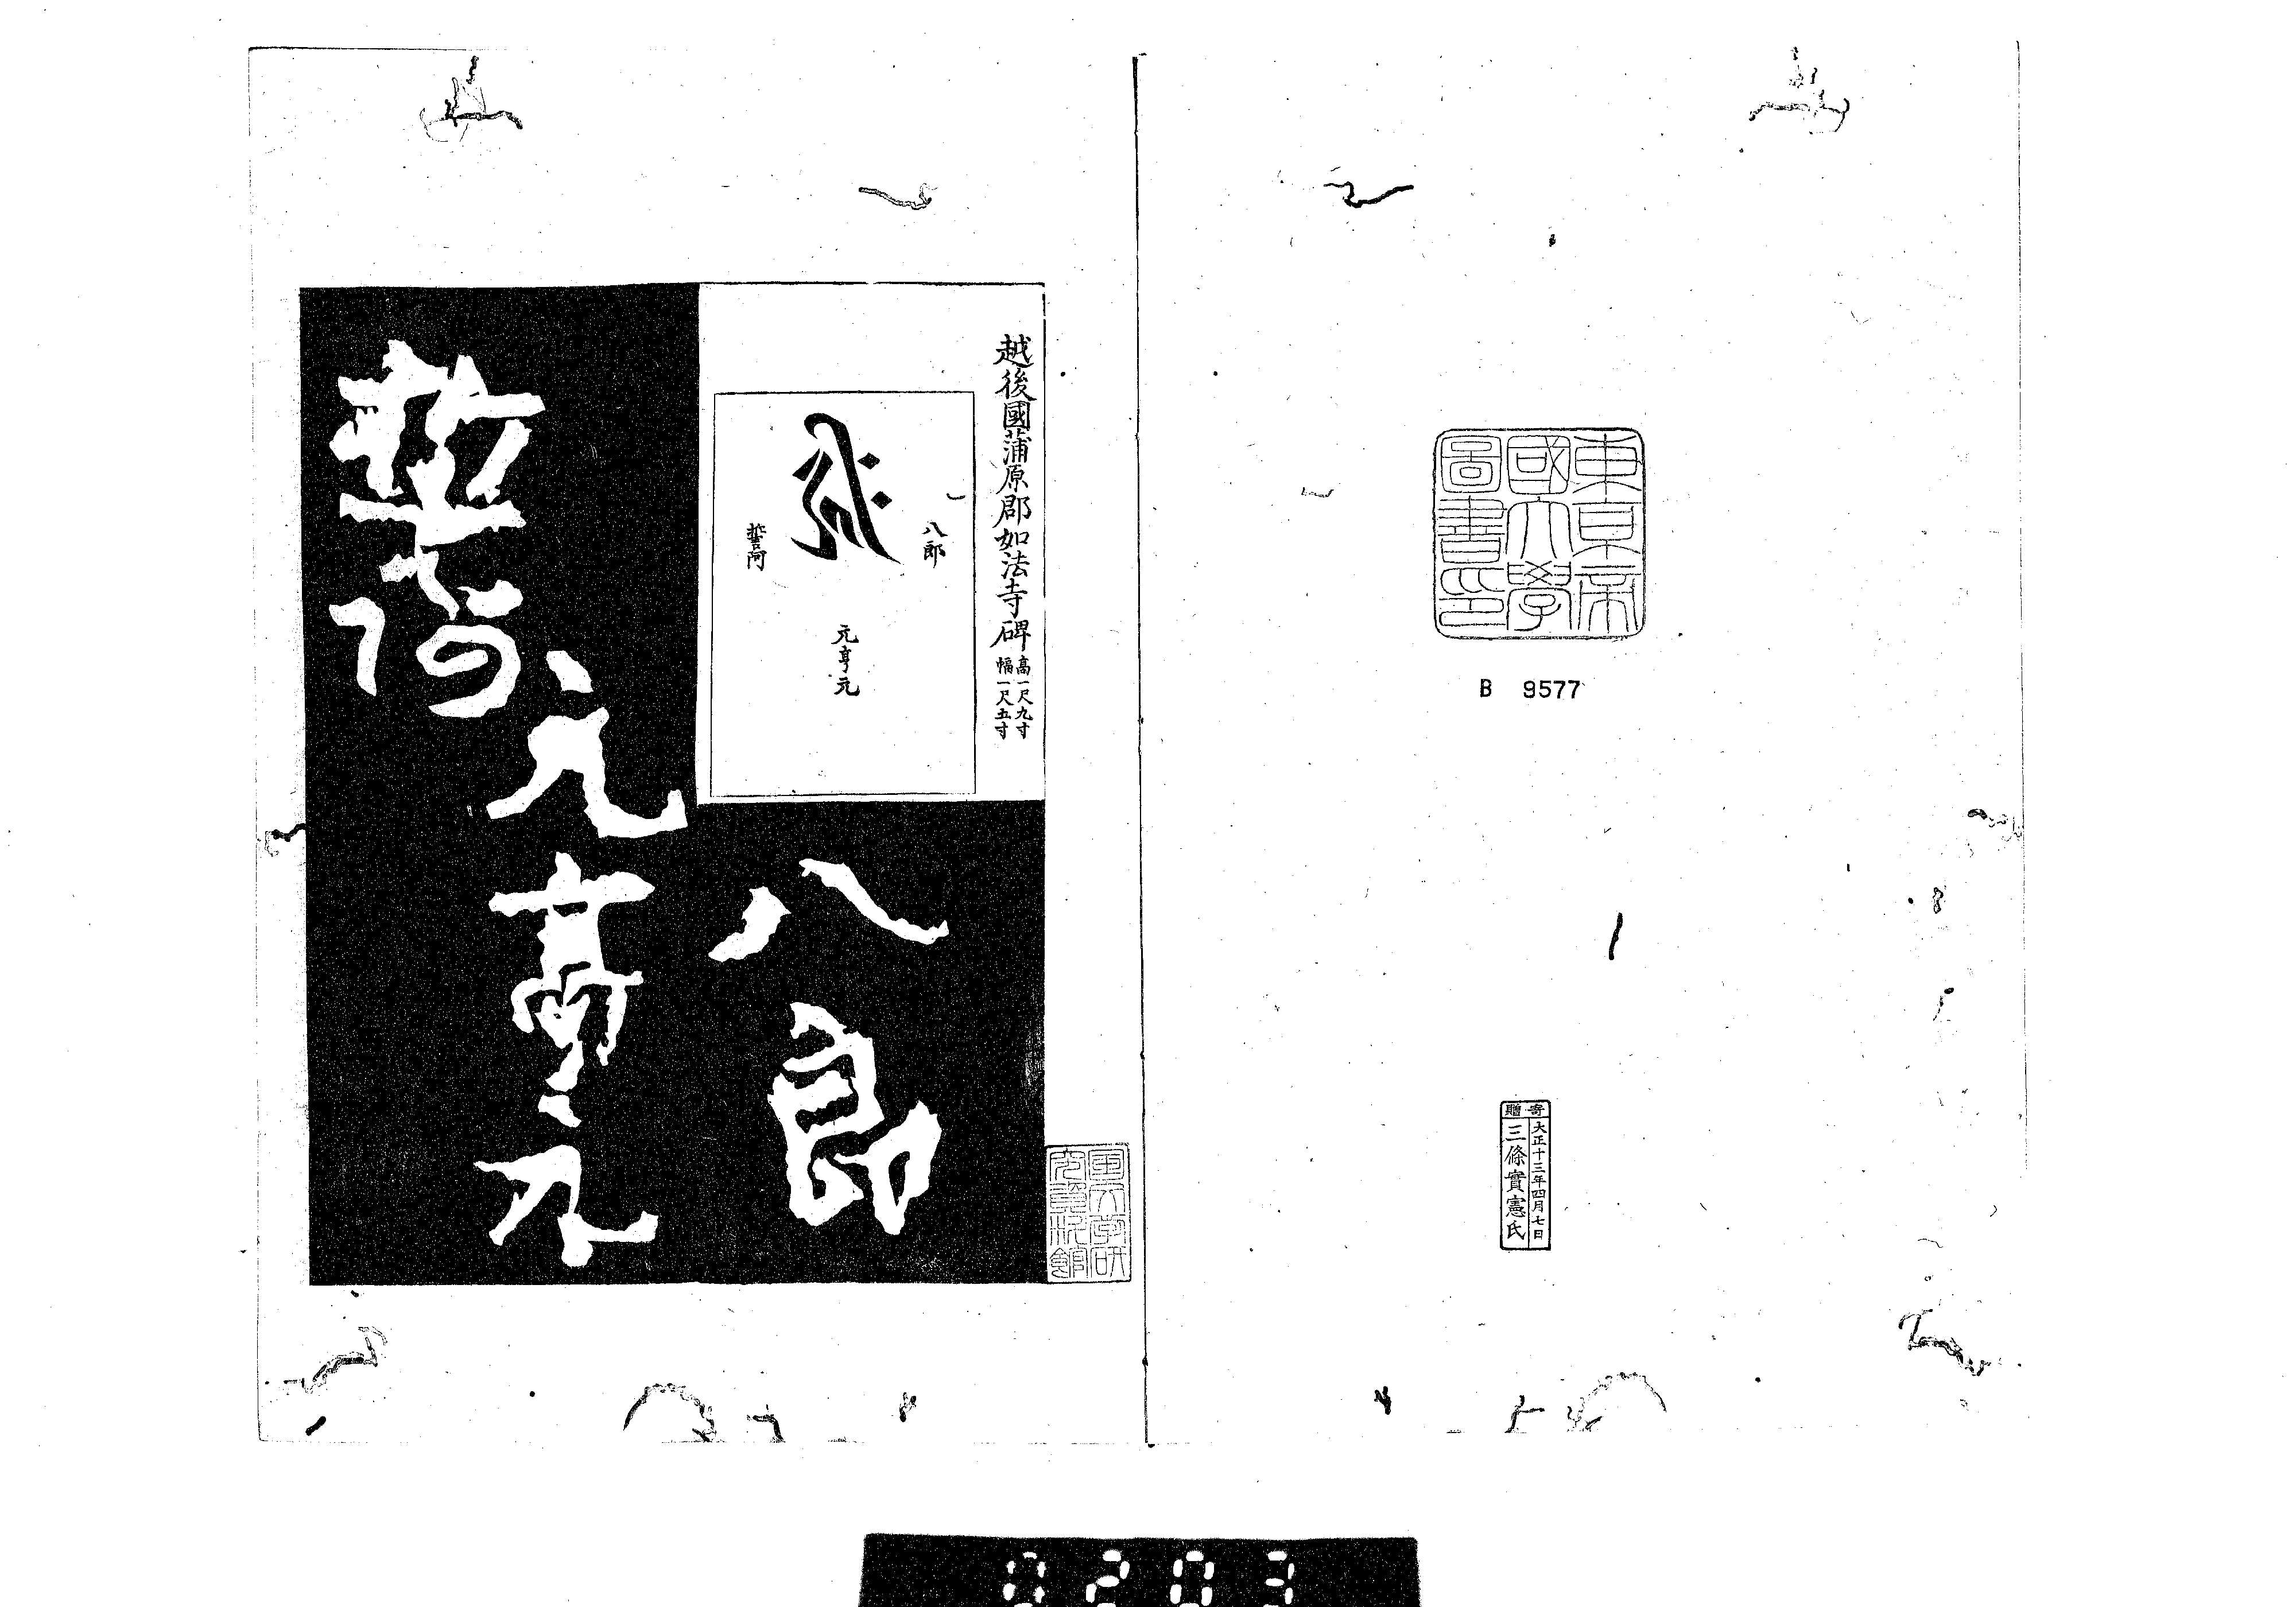 東京帝
國大學
圖書印
B 9577
寄贈
大正十三年四月七日
三條實憲氏
越後國蒲原郡如法寺碑
高一尺九寸
幅一尺五寸
八郎
元亨元
誓阿
八郎
元亨元
誓阿
0203